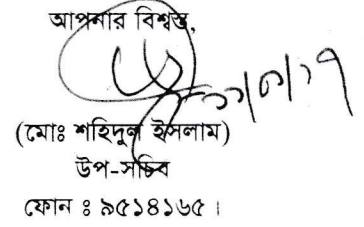 আপনার বিশ্বস্ত,
(মোঃ শহিদুল ইসলাম)
উপ-সচিব
ফোন ঃ ৯৫১৪১৬৫।